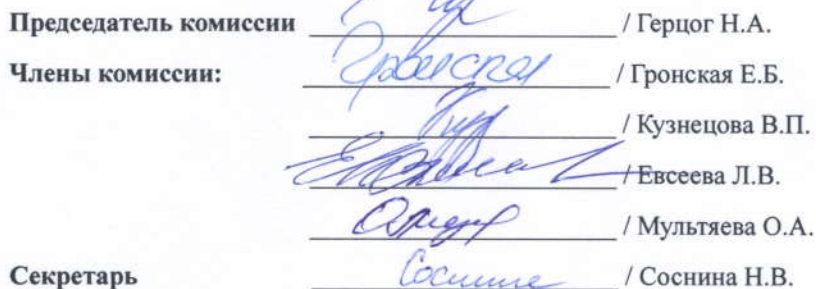 Председатель комиссии / Герцог Н.А.
Члены комиссии: Гронская / Гронская Е.Б.
/ Кузнецова В.П.
/ Евсеева Л.В.
/ Мультяева О.А.
Секретарь / Соснина Н.В.